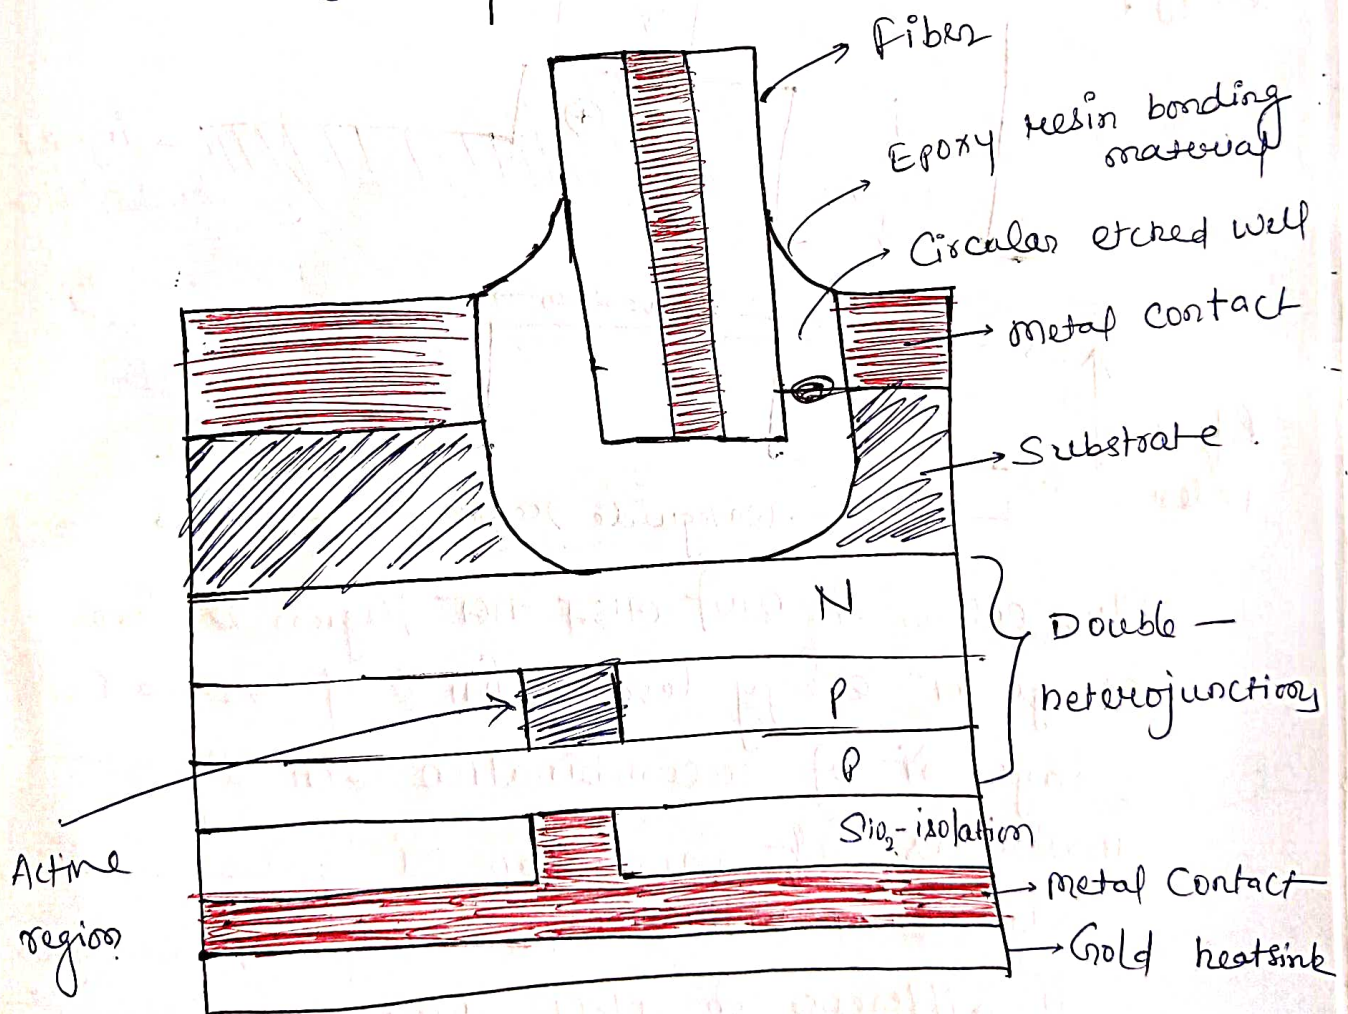 Fiber
Epoxy resin bonding
material
Circular etched well
Metal Contact
Substrate.
N
Double -
heterojunction
P
P
SiO2-isolation
Active
region
Metal Contact
Gold heatsink